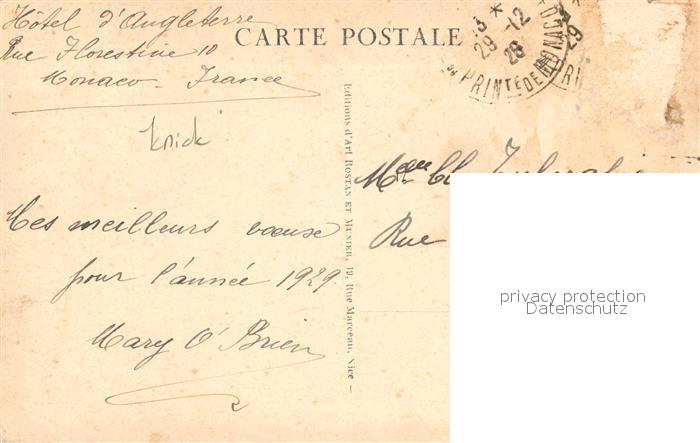 Hôtel d'Angleterre
Rue Florestine 10
Monaco - France
CARTE POSTALE
29 -12
28
PRINTÉ DE MONACO
knick
Mes meilleurs voeux
pour l'année 1929.
Mary O'Brien
Editions d'Art ROSTAN ET MUNIER, 19, Rue Marceau, Nice –
Rue
privacy protection
Datenschutz